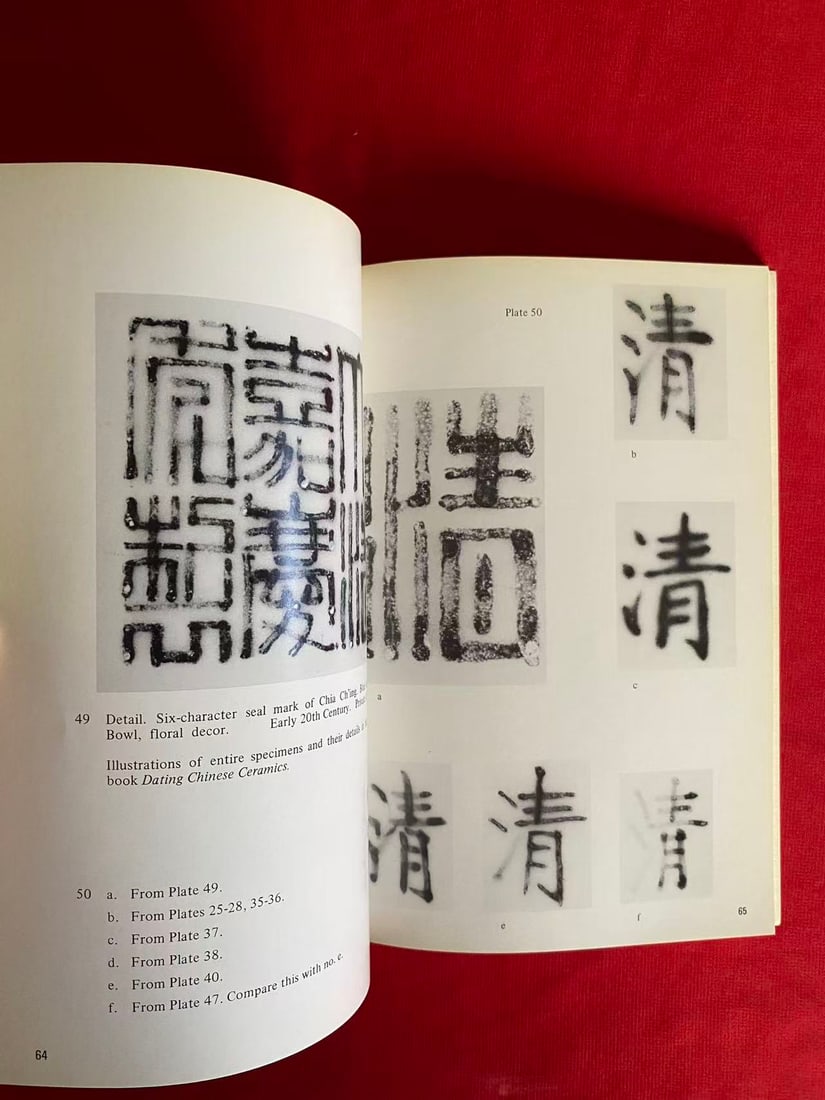 嘉慶
年製
49 Detail. Six-character seal mark of Chia Ch'ing.
Bowl, floral decor. Early 20th Century.
Illustrations of entire specimens and their details
book Dating Chinese Ceramics.
50 a. From Plate 49.
b. From Plates 25-28, 35-36.
c. From Plate 37.
d. From Plate 38.
e. From Plate 40.
f. From Plate 47. Compare this with no. e.
64
Plate 50
清
a
清
b
清
c
清
清
e
清
f
65